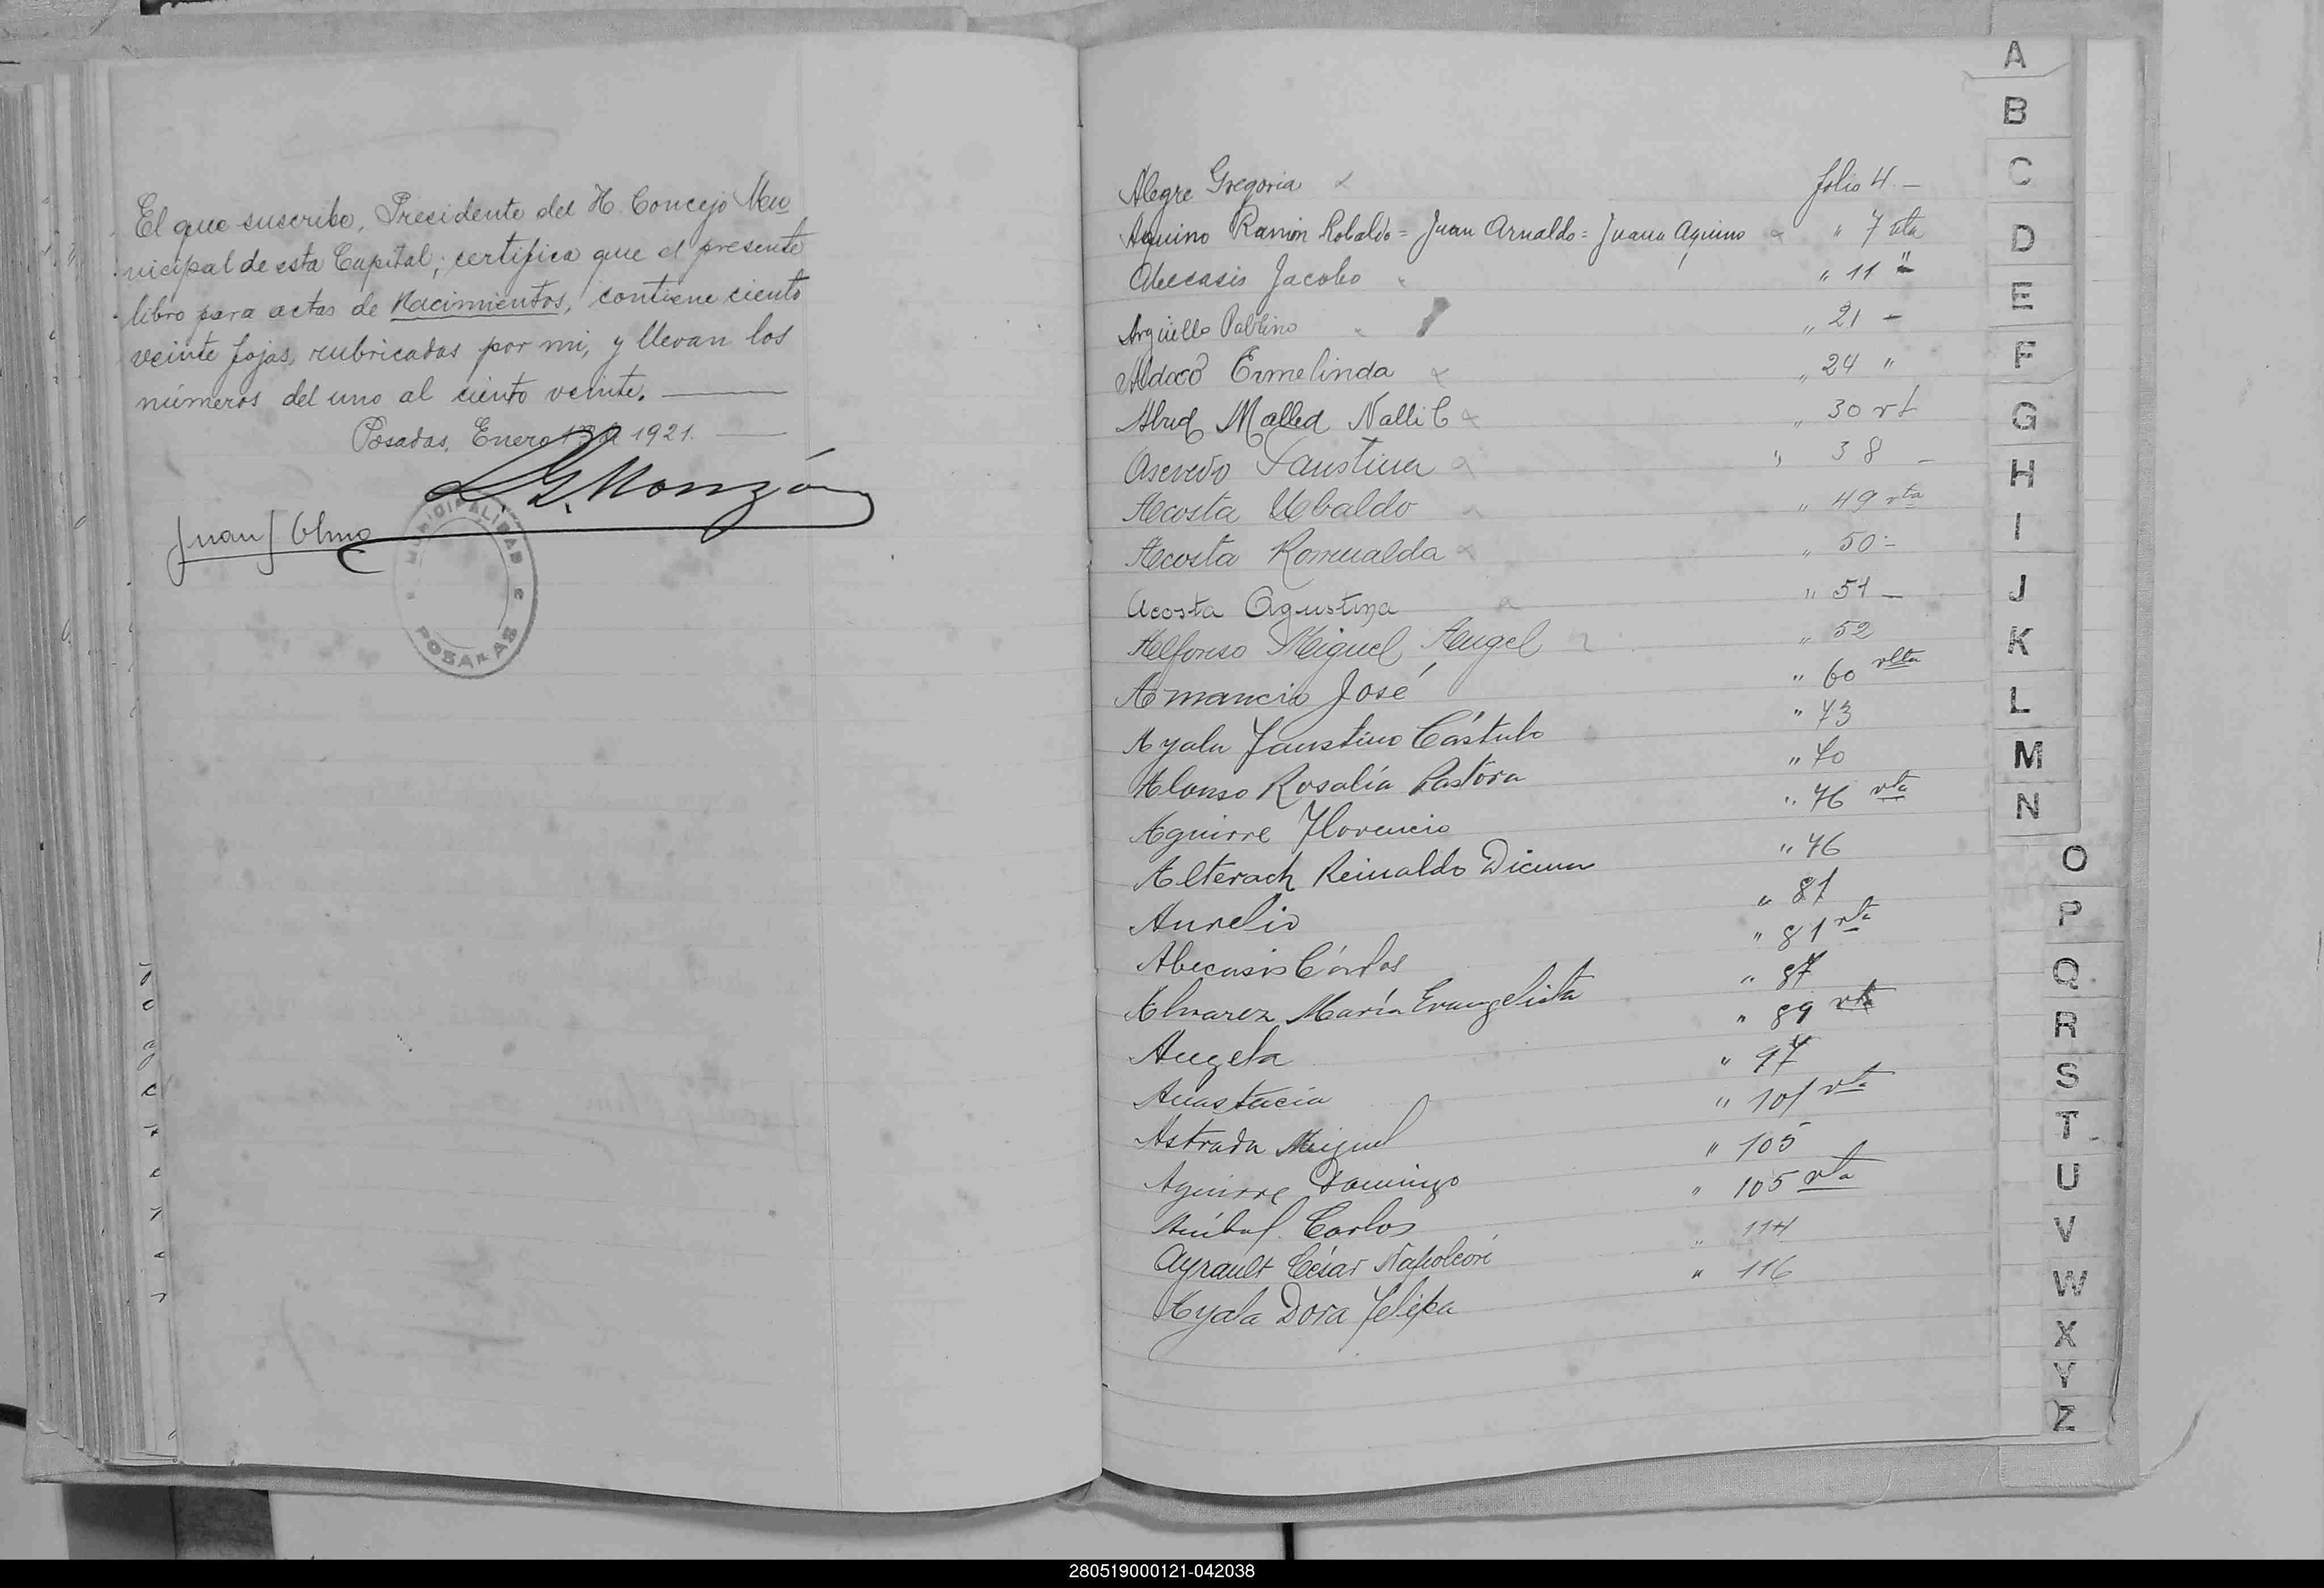 El que suscribe, Presidente del H. Concejo Mu
nicipal de esta Capital; certifica que el presente
libro para actas de Nacimientos, contiene ciento
veinte fojas, rubricadas por mi, y llevan los
números del uno al ciento veinte.
Posadas, Enero 1921.
L. G. Monzón
Juan J Olmo
MUNICIPALIDAD
POSADAS
Alegre Gregoria folio 4.-
Aquino Ramón Robaldo = Juan Arnaldo = Juana Aquino " 7 vta
Abecasis Jacobo " 11 "
Argüello Pablino " 21 -
Aldocó Ermelinda " 24 "
Abud Malled Nallib " 30 vt
Asevedo Faustina " 38 -
Acosta Ubaldo " 49 vta
Acosta Romualda " 50 -
Acosta Agustina " 51 -
Alfonso Miguel Angel " 52
Amancio José " 60 vlta
Ayala Faustino Cástulo " 73
Alonso Rosalía Pastora " 70
Aguirre Florencio " 76 vta
Alterach Reinaldo " 76
Aurelio " 81
Abecasis Cárlos " 81 vta
Alvarez María Evangelista " 87
Angela " 89 vta
Anastacia " 97
Astrada Miguel " 101 vta
Aguirre Domingo " 105
Anibal Carlos " 105 vta
Ayrault César Napoleón " 114
Ayala Dora Felipa " 116
A
B
C
D
E
F
G
H
I
J
K
L
M
N
O
P
Q
R
S
T
U
V
W
X
Y
Z
280519000121-042038